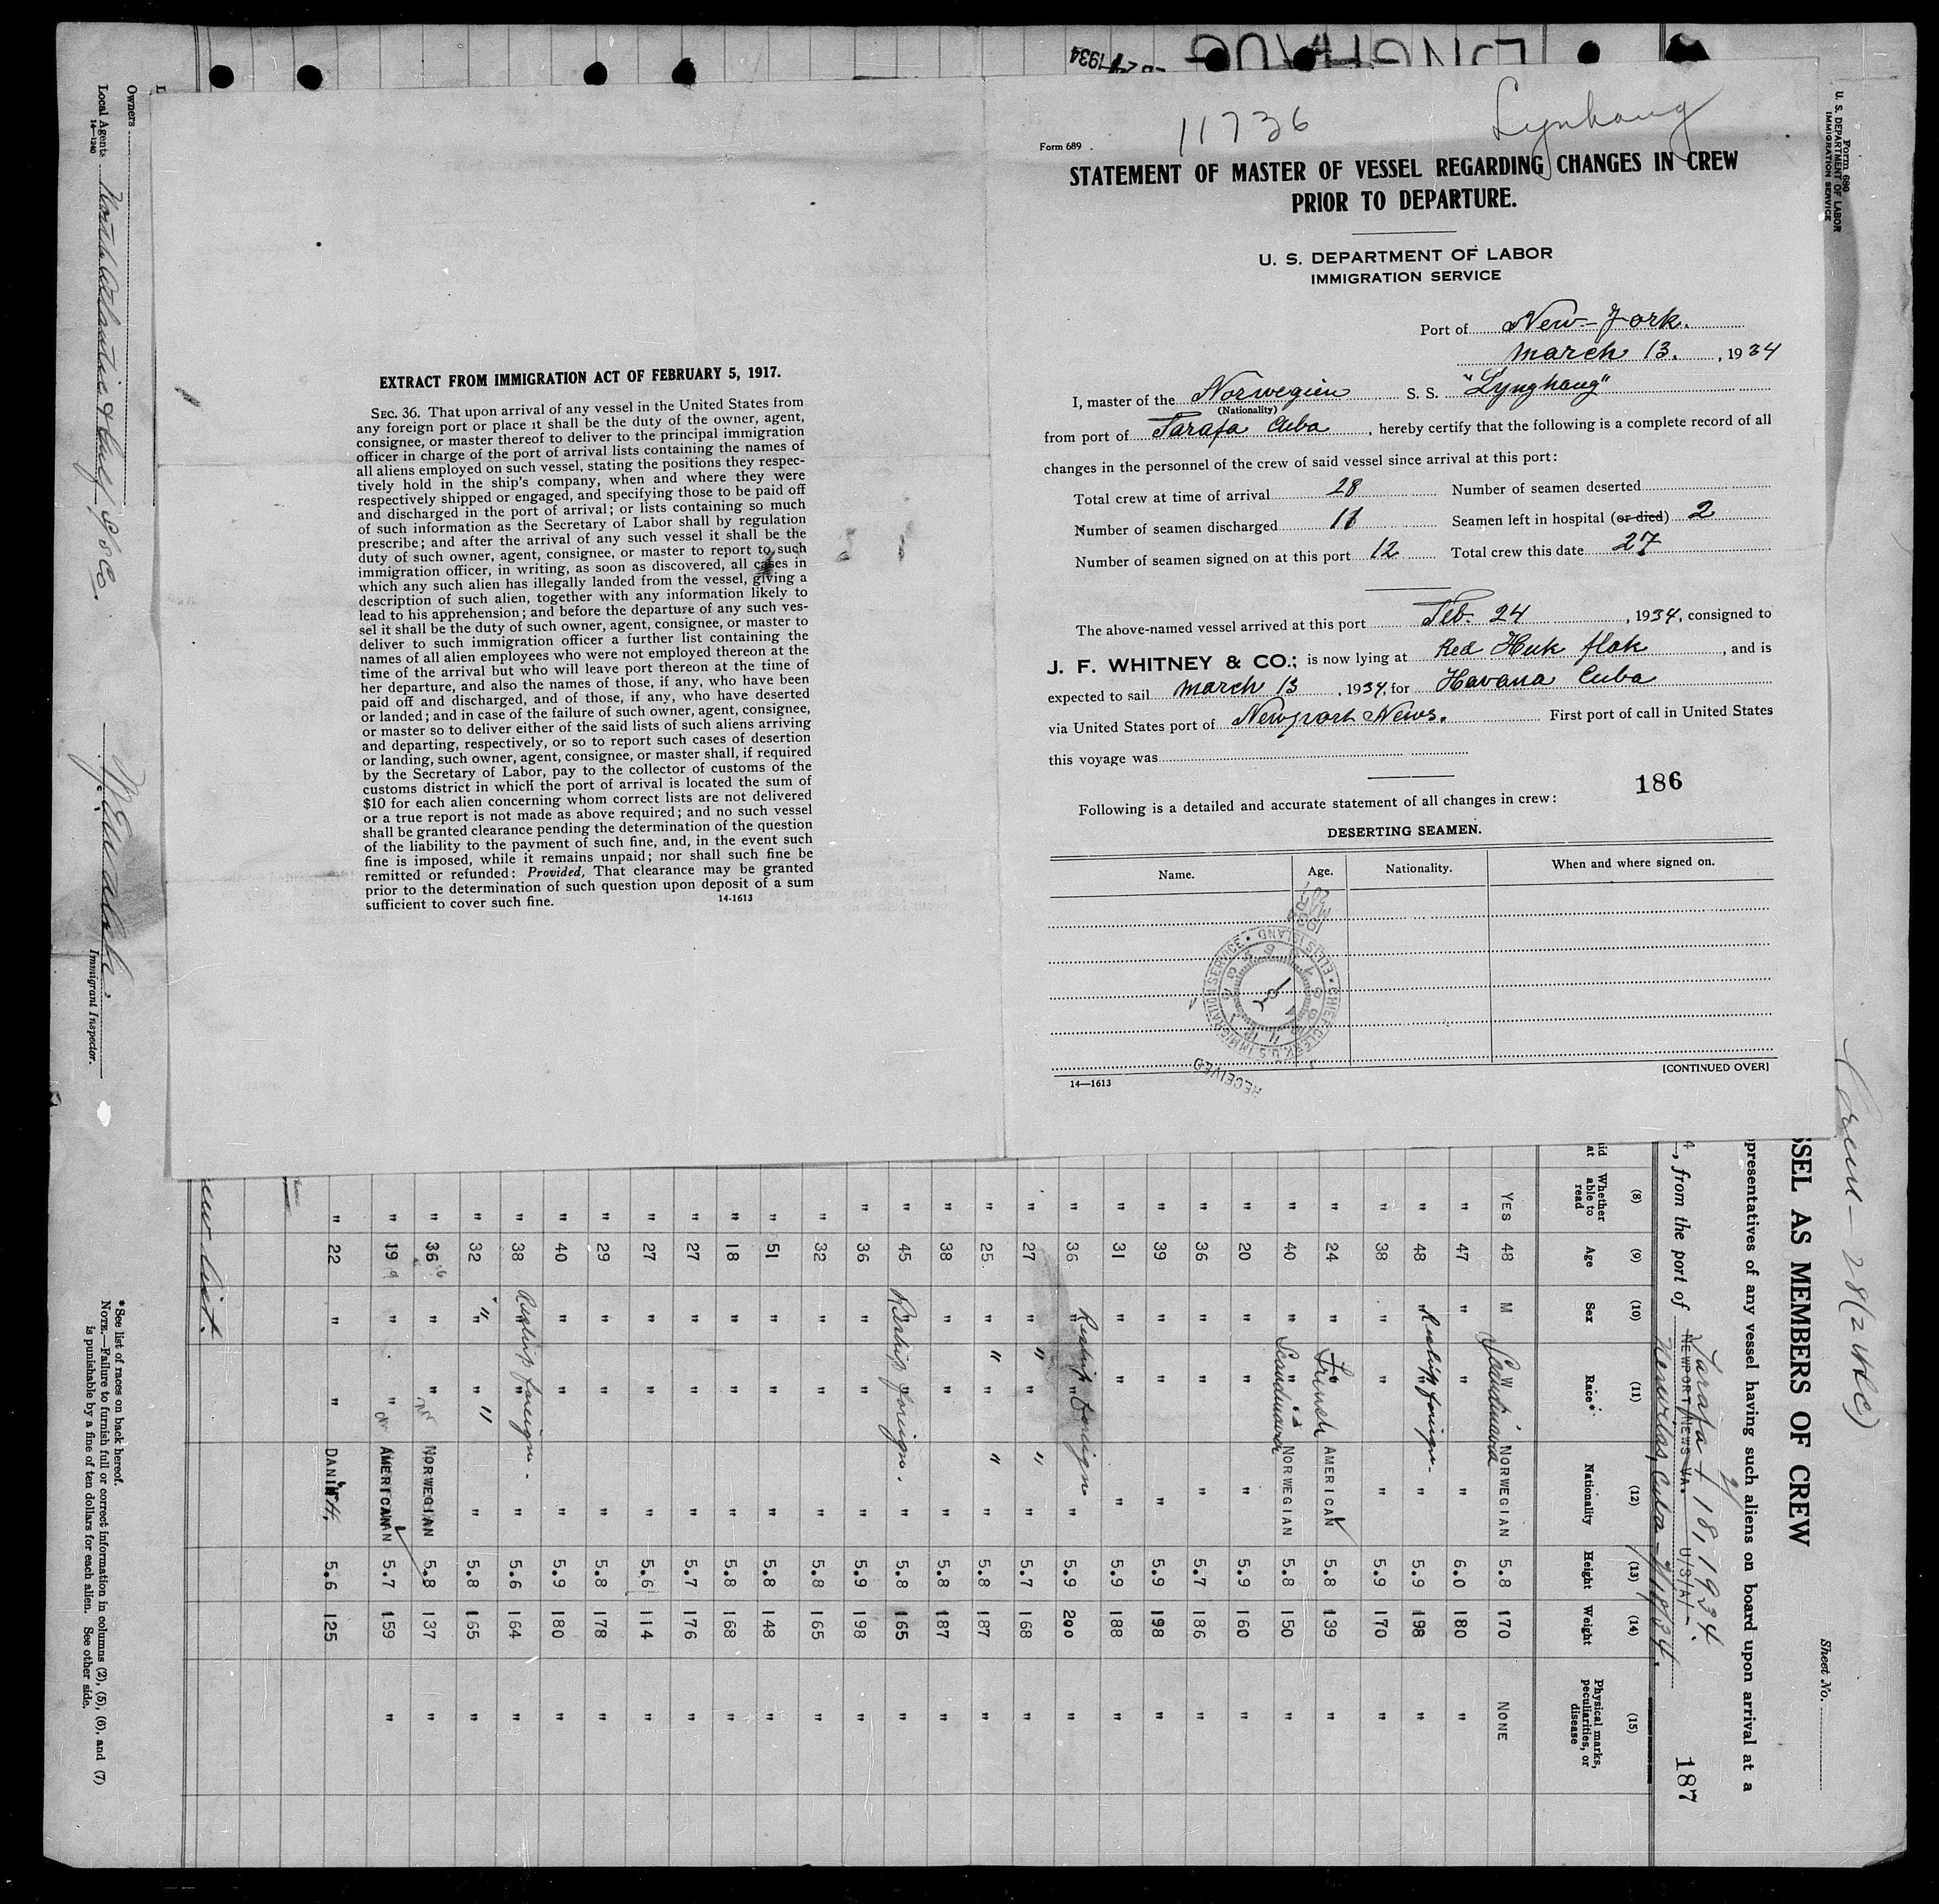 LYNGHAUG
1934
11736
Lynhaug
Form 689
STATEMENT OF MASTER OF VESSEL REGARDING CHANGES IN CREW
PRIOR TO DEPARTURE.
U. S. DEPARTMENT OF LABOR
IMMIGRATION SERVICE
Port of New-York.
March 13., 1934
I, master of the Norwegien S. S. "Lynghaug"
(Nationality)
from port of Tarafa Cuba, hereby certify that the following is a complete record of all
changes in the personnel of the crew of said vessel since arrival at this port:
Total crew at time of arrival 28 Number of seamen deserted
Number of seamen discharged 11 Seamen left in hospital (or died) 2
Number of seamen signed on at this port 12 Total crew this date 27
The above-named vessel arrived at this port Feb. 24, 1934, consigned to
J. F. WHITNEY & CO.; is now lying at Red Huk flak, and is
expected to sail March 13, 1934, for Havana Cuba
via United States port of Newport News. First port of call in United States
this voyage was
186
Following is a detailed and accurate statement of all changes in crew:
DESERTING SEAMEN.
Name. Age. Nationality. When and where signed on.
RECEIVED
CHIEF CLERK, U.S. IMMIGRATION SERVICE • ELLIS ISLAND •
14—1613
[CONTINUED OVER]
EXTRACT FROM IMMIGRATION ACT OF FEBRUARY 5, 1917.
SEC. 36. That upon arrival of any vessel in the United States from
any foreign port or place it shall be the duty of the owner, agent,
consignee, or master thereof to deliver to the principal immigration
officer in charge of the port of arrival lists containing the names of
all aliens employed on such vessel, stating the positions they respec-
tively hold in the ship's company, when and where they were
respectively shipped or engaged, and specifying those to be paid off
and discharged in the port of arrival; or lists containing so much
of such information as the Secretary of Labor shall by regulation
prescribe; and after the arrival of any such vessel it shall be the
duty of such owner, agent, consignee, or master to report to such
immigration officer, in writing, as soon as discovered, all cases in
which any such alien has illegally landed from the vessel, giving a
description of such alien, together with any information likely to
lead to his apprehension; and before the departure of any such ves-
sel it shall be the duty of such owner, agent, consignee, or master to
deliver to such immigration officer a further list containing the
names of all alien employees who were not employed thereon at the
time of the arrival but who will leave port thereon at the time of
her departure, and also the names of those, if any, who have been
paid off and discharged, and of those, if any, who have deserted
or landed; and in case of the failure of such owner, agent, consignee,
or master so to deliver either of the said lists of such aliens arriving
and departing, respectively, or so to report such cases of desertion
or landing, such owner, agent, consignee, or master shall, if required
by the Secretary of Labor, pay to the collector of customs of the
customs district in which the port of arrival is located the sum of
$10 for each alien concerning whom correct lists are not delivered
or a true report is not made as above required; and no such vessel
shall be granted clearance pending the determination of the question
of the liability to the payment of such fine, and, in the event such
fine is imposed, while it remains unpaid; nor shall such fine be
remitted or refunded: Provided, That clearance may be granted
prior to the determination of such question upon deposit of a sum
sufficient to cover such fine.
14-1613
Form 689
U. S. DEPARTMENT OF LABOR
IMMIGRATION SERVICE
Sheet No.
SSEL AS MEMBERS OF CREW
presentatives of any vessel having such aliens on board upon arrival at a
, from the port of Tarafa 18, 1934.
NEWPORT NEWS VA. U/S/A/-
Cuba
187
(8) (9) (10) (11) (12) (13) (14) (15)
Whether able to read Age Sex Race* Nationality Height Weight Physical marks, peculiarities, or disease
YES 48 M Scandinavia NORWEGIAN 5.8 170 NONE
" 47 " " " 6.0 180 "
" 48 " Reship foreign- " 5.9 198 "
" 38 " " " 5.9 170 "
" 24 " French AMERICAN 5.8 139 "
" 40 " Scandinavia NORWEGIAN 5.8 150 "
" 20 " " " 5.9 160 "
" 36 " " " 5.7 186 "
" 39 " " " 5.9 198 "
" 31 " " " 5.9 188 "
" 36 " Reship foreign " 5.9 200 "
" 27 " " " 5.7 168 "
" 25 " " " 5.8 187 "
" 38 " " " 5.8 187 "
" 45 " Reship foreign. " 5.8 165 "
" 36 " " " 5.9 198 "
" 32 " " " 5.8 165 "
" 51 " " " 5.8 148 "
" 18 " " " 5.8 168 "
" 27 " " " 5.7 176 "
" 27 " " " 5.6 114 "
" 29 " " " 5.8 178 "
" 40 " " " 5.9 180 "
" 38 " Reship foreign- " 5.6 164 "
" 32 " " " 5.8 165 "
" 36 " " NORWEGIAN 5.8 137 "
" 19 " " AMERICAN 5.7 159 "
" 22 " " DANISH. 5.6 125
list.
*See list of races on back hereof.
NOTE.—Failure to furnish full or correct information in columns (2), (5), (6), and (7)
is punishable by a fine of ten dollars for each alien. See other side.
Owners
Local Agents North Atlantic & Gulf S/S Co.
14—1240
Immigrant Inspector.